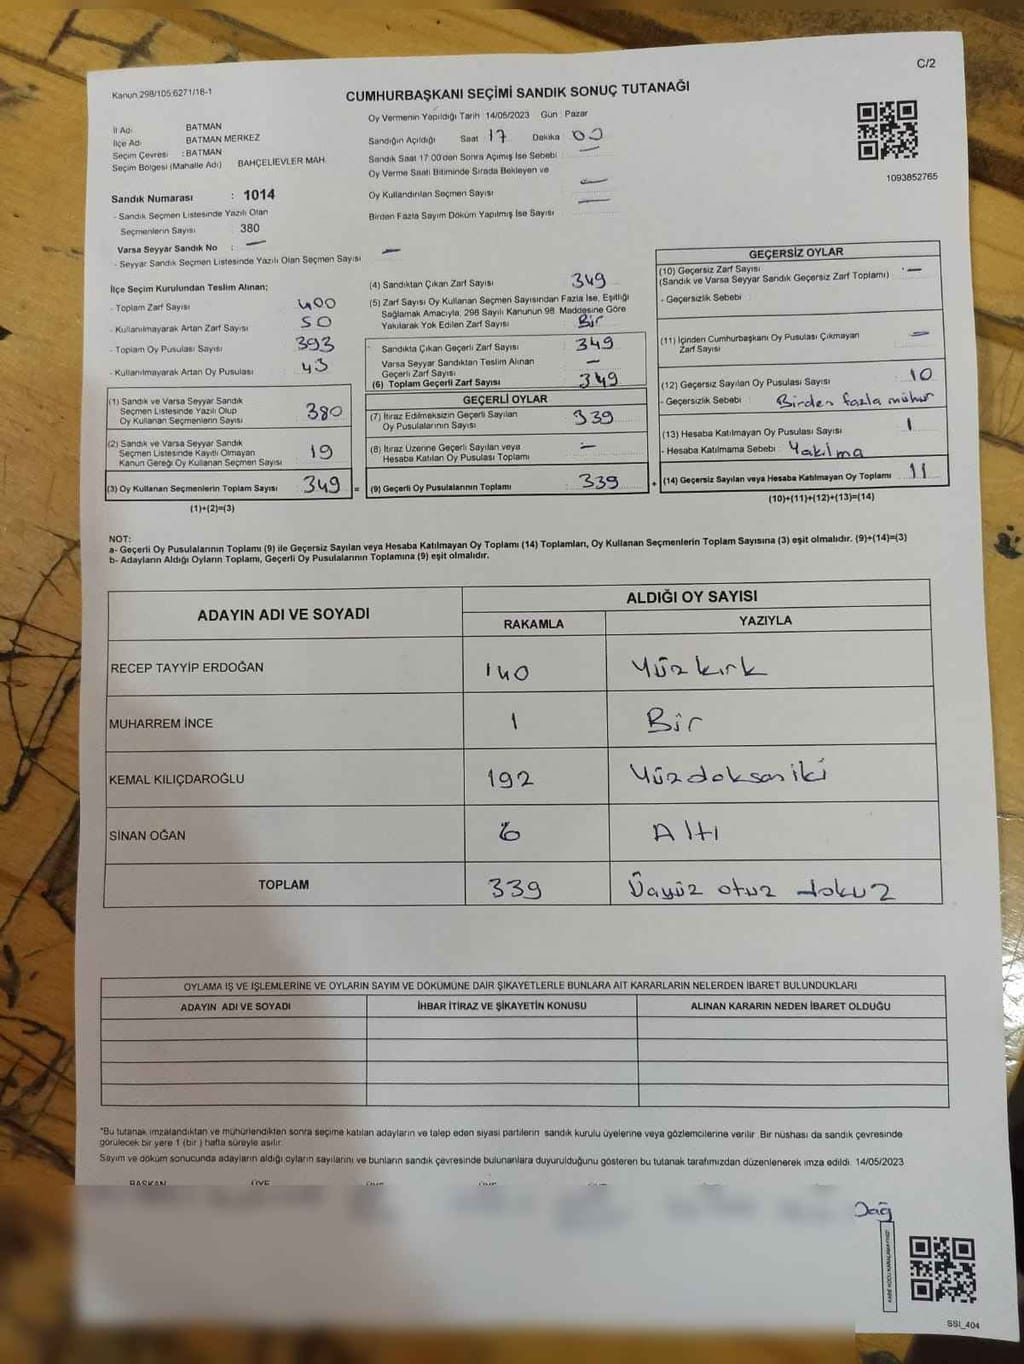 C/2
Kanun 298/105.6271/18-1
CUMHURBAŞKANI SEÇİMİ SANDIK SONUÇ TUTANAĞI
İl Adı BATMAN
İlçe Adı BATMAN MERKEZ
Seçim Çevresi : BATMAN
Seçim Bölgesi (Mahalle Adı) BAHÇELİEVLER MAH.
Sandık Numarası : 1014
- Sandık Seçmen Listesinde Yazılı Olan
Seçmenlerin Sayısı 380
Varsa Seyyar Sandık No : —
- Seyyar Sandık Seçmen Listesinde Yazılı Olan Seçmen Sayısı —
Oy Vermenin Yapıldığı Tarih 14/05/2023 Gün Pazar
Sandığın Açıldığı Saat 17 Dakika 00
Sandık Saat 17:00'den Sonra Açımış İse Sebebi —
Oy Verme Saati Bitiminde Sırada Bekleyen ve
Oy Kullandırılan Seçmen Sayısı —
Birden Fazla Sayım Döküm Yapılmış İse Sayısı —
1093852765
İlçe Seçim Kurulundan Teslim Alınan;
- Toplam Zarf Sayısı 400
- Kullanılmayarak Artan Zarf Sayısı 50
- Toplam Oy Pusulası Sayısı 393
- Kullanılmayarak Artan Oy Pusulası 43
(1) Sandık ve Varsa Seyyar Sandık
Seçmen Listesinde Yazılı Olup
Oy Kullanan Seçmenlerin Sayısı 380
(2) Sandık ve Varsa Seyyar Sandık
Seçmen Listesinde Kayıtlı Olmayan
Kanun Gereği Oy Kullanan Seçmen Sayısı 19
(3) Oy Kullanan Seçmenlerin Toplam Sayısı 349 =
(1)+(2)=(3)
(4) Sandıktan Çıkan Zarf Sayısı 349
(5) Zarf Sayısı Oy Kullanan Seçmen Sayısından Fazla İse, Eşitliği
Sağlamak Amacıyla, 298 Sayılı Kanunun 98. Maddesine Göre
Yakılarak Yok Edilen Zarf Sayısı Bir
Sandıkta Çıkan Geçerli Zarf Sayısı 349
Varsa Seyyar Sandıktan Teslim Alınan
Geçerli Zarf Sayısı —
(6) Toplam Geçerli Zarf Sayısı 349
GEÇERLİ OYLAR
(7) İtiraz Edilmeksizin Geçerli Sayılan
Oy Pusulalarının Sayısı 339
(8) İtiraz Üzerine Geçerli Sayılan veya
Hesaba Katılan Oy Pusulası Toplamı —
(9) Geçerli Oy Pusulalarının Toplamı 339 +
GEÇERSİZ OYLAR
(10) Geçersiz Zarf Sayısı —
(Sandık ve Varsa Seyyar Sandık Geçersiz Zarf Toplamı)
- Geçersizlik Sebebi
(11) İçinden Cumhurbaşkanı Oy Pusulası Çıkmayan —
Zarf Sayısı
(12) Geçersiz Sayılan Oy Pusulası Sayısı 10
- Geçersizlik Sebebi Birden fazla mühür
(13) Hesaba Katılmayan Oy Pusulası Sayısı 1
- Hesaba Katılmama Sebebi Yakılma
(14) Geçersiz Sayılan veya Hesaba Katılmayan Oy Toplamı 11
(10)+(11)+(12)+(13)=(14)
NOT:
a- Geçerli Oy Pusulalarının Toplamı (9) ile Geçersiz Sayılan veya Hesaba Katılmayan Oy Toplamı (14) Toplamları, Oy Kullanan Seçmenlerin Toplam Sayısına (3) eşit olmalıdır. (9)+(14)=(3)
b- Adayların Aldığı Oyların Toplamı, Geçerli Oy Pusulalarının Toplamına (9) eşit olmalıdır.
ADAYIN ADI VE SOYADI ALDIĞI OY SAYISI
RAKAMLA YAZIYLA
RECEP TAYYİP ERDOĞAN 140 Yüzkırk
MUHARREM İNCE 1 Bir
KEMAL KILIÇDAROĞLU 192 Yüzdoksan iki
SİNAN OĞAN 6 Altı
TOPLAM 339 Üçyüz otuz dokuz
OYLAMA İŞ VE İŞLEMLERİNE VE OYLARIN SAYIM VE DÖKÜMÜNE DAİR ŞİKAYETLERLE BUNLARA AİT KARARLARIN NELERDEN İBARET BULUNDUKLARI
ADAYIN ADI VE SOYADI İHBAR İTİRAZ VE ŞİKAYETİN KONUSU ALINAN KARARIN NEDEN İBARET OLDUĞU
*Bu tutanak imzalandıktan ve mühürlendikten sonra seçime katılan adayların ve talep eden siyasi partilerin sandık kurulu üyelerine veya gözlemcilerine verilir. Bir nüshası da sandık çevresinde
görülecek bir yere 1 (bir) hafta süreyle asılır.
Sayım ve döküm sonucunda adayların aldığı oyların sayılarını ve bunların sandık çevresinde bulunanlara duyurulduğunu gösteren bu tutanak tarafımızdan düzenlenerek imza edildi. 14/05/2023
BAŞKAN ÜYE ÜYE ÜYE
Dağ
SSI_404